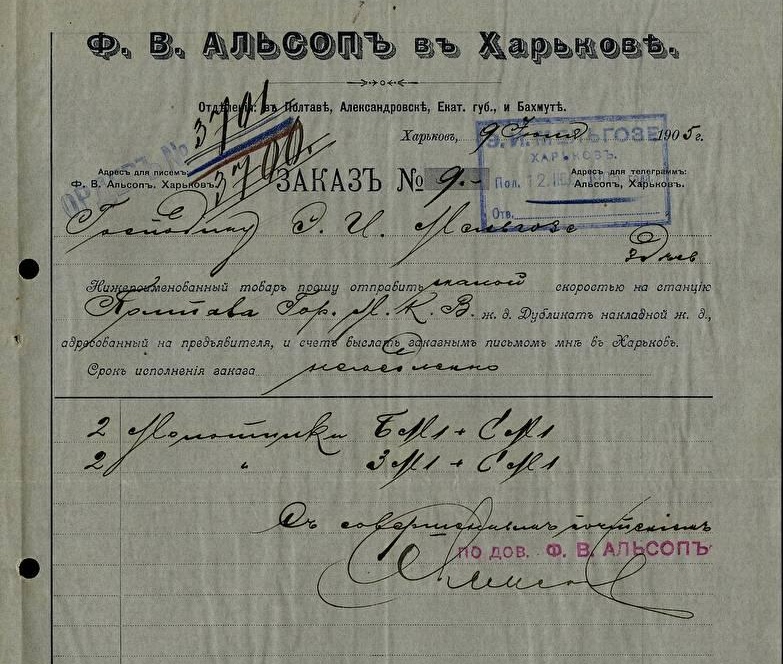 Ф. В. АЛЬСОПЪ въ Харьковѣ.
Отдѣленія: въ Полтавѣ, Александровскѣ, Екат. губ., и Бахмутѣ.
3701
3700.
Харьковъ, 9 Іюня 1905 г.
Э. И. МЕЛЬГОЗЕ
ХАРЬКОВЪ.
Пол. 12
Отв.
Адресъ для писемъ:
Ф. В. Альсопъ. Харьковъ.
ЗАКАЗЪ № 9.-
Адресъ для телеграммъ:
Альсопъ, Харьковъ.
Господину Э. И. Мельгозе
Здѣсь
Нижепоименованный товаръ прошу отправить малой скоростью на станцію
Полтава Гор. М. К. В. ж. д. Дубликатъ накладной ж. д.,
адресованный на предъявителя, и счетъ выслать заказнымъ письмомъ мнѣ въ Харьковъ.
Срокъ исполненія заказа немедленно
2 Молотилки БМ1 + СМ1
2 " ЗМ1 + СМ1
Съ совершеннымъ почтеніемъ
ПО ДОВ. Ф. В. АЛЬСОПЪ